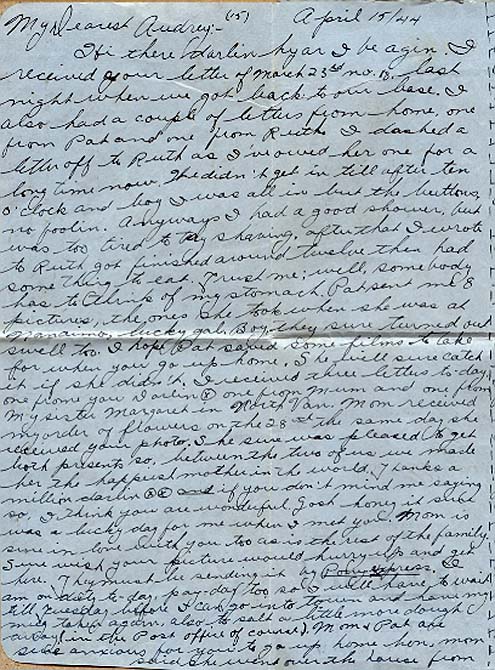 My Dearest Audrey:- (15) April 15/44
Hi there darlin hyar I be agin. I
received your letter of March 23rd no. 18, last
night when we got back to our base. I
also had a couple of letters from home, one
from Pat and one from Ruth. I dashed a
letter off to Ruth as I've owed her one for a
long time now. We didn't get in till after ten
o'clock and boy I was all in but the buttons,
no foolin. Anyways I had a good shower, but
was too tired to try shaving, after that I wrote
to Ruth got finished around twelve then had
some thing to eat. Trust me; well, somebody
has to think of my stomach. Pat sent me 8
pictures, the ones she took when she was at
Nanaimo, lucky gal. Boy they sure turned out
swell too. I hope Pat saved some films to take
for when you go up home. She will sure catch
it if she didn't. I received three letters to-day,
one from you Darlin one from Mum and one from
my sister Margaret in North Van. Mom received
my order of flowers on the 28th the same day she
received your photo. She sure was pleased to get
both presents so, between the two of us we made
her the happiest mother in the world. Thanks a
million darlin if you don't mind me saying
so, I think you are wonderful. Gosh honey it sure
was a lucky day for me when I met you. Mom is
sure in love with you too as is the rest of the family.
Sure wish your picture would hurry up and get
here. They must be sending it by Pony express. I
am on duty to-day, pay day too so I will have to wait
till Tuesday before I can go in to and have my
mug taken again, also to salt a little more dough
away (in the Post office of course). Mom & Pat are
sure anxious for you to go up home hon, mom
said she went over the house from